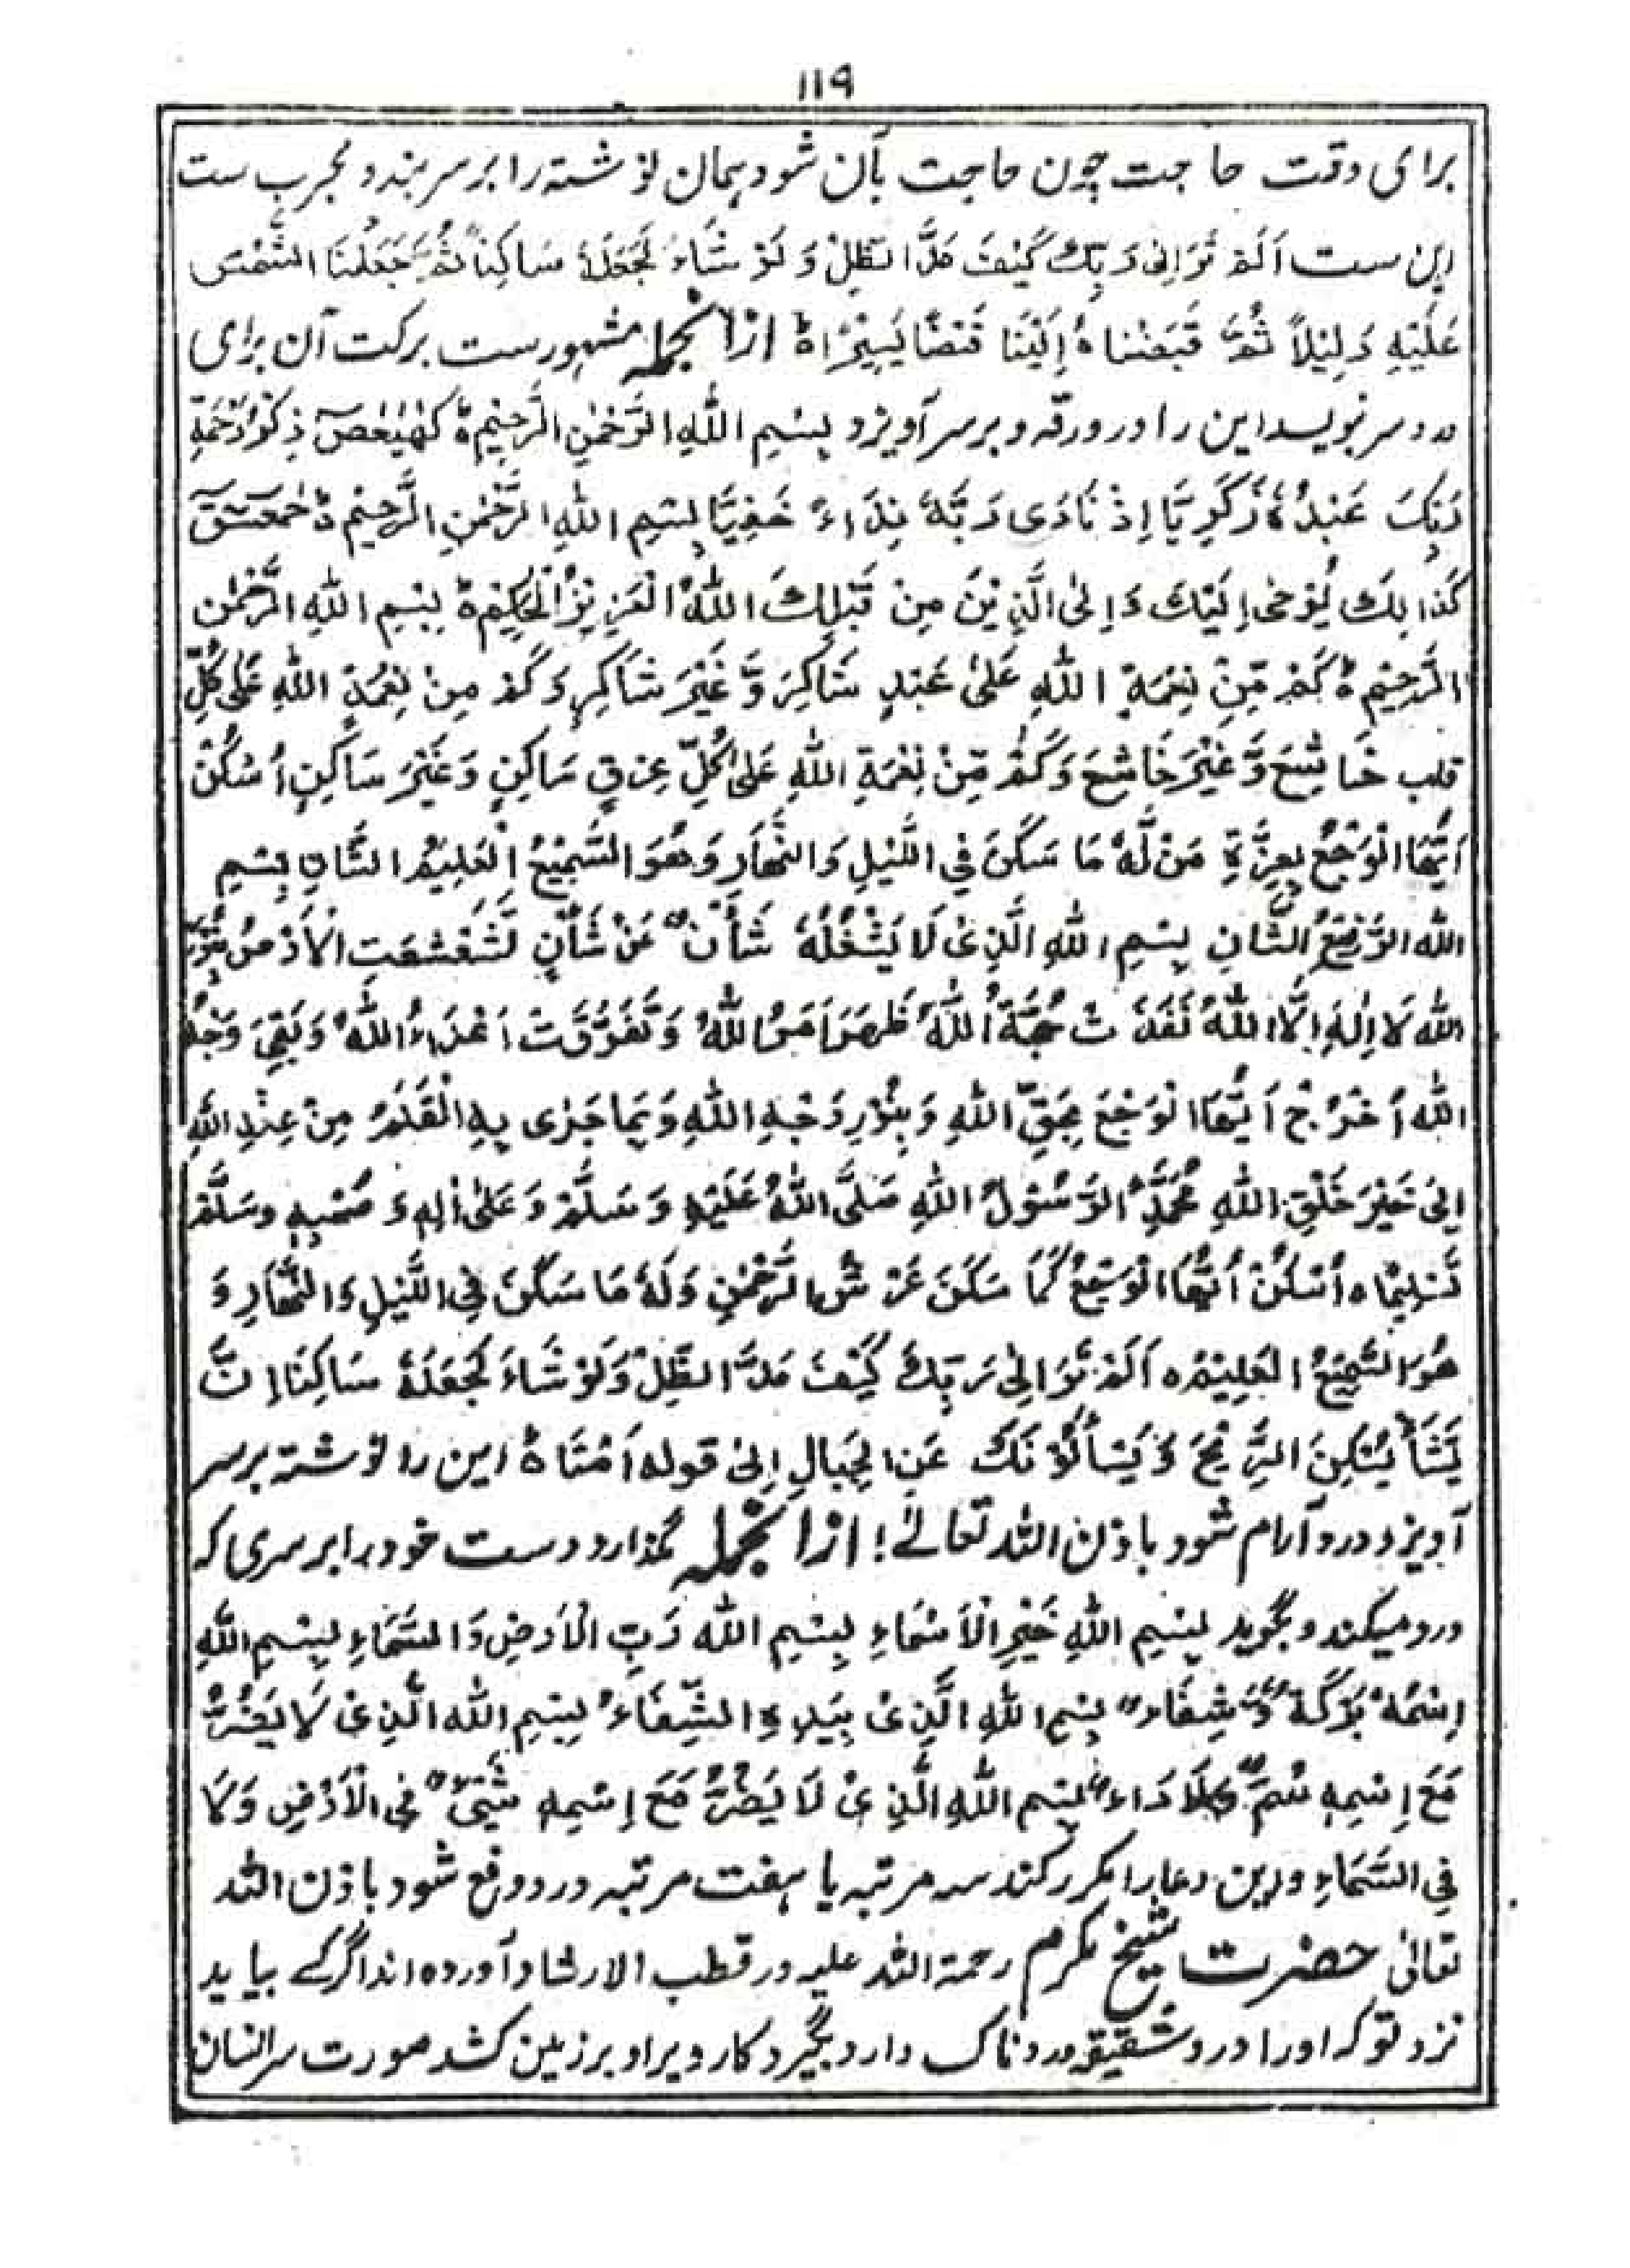 ۱۱۹
برای وقت حاجت چون حاجت بآن شود ہمان نوشتہ را بر سر بندد مجرب ست
این ست اَلَمْ تَرَ اِلٰی رَبِّكَ كَیْفَ مَدَّ الظِّلَّ وَ لَوْ شَاءَ لَجَعَلَهٗ سَاكِنًا ثُمَّ جَعَلْنَا الشَّمْسَ
عَلَیْهِ دَلِیْلاً ثُمَّ قَبَضْنَاهُ اِلَیْنَا قَبْضًا یَّسِیْرًاہ ازانجملہ مشہورست برکت آن برای
درد سر نویسد این را در ورقہ و بر سر آویزد بِسْمِ اللّٰهِ الرَّحْمٰنِ الرَّحِیْمِ ہ كٓهٰیٰعٓصٓ ذِكْرُ رَحْمَةِ
رَبِّكَ عَبْدَهٗ زَكَرِیَّا اِذْ نَادٰی رَبَّهٗ نِدَاءً خَفِیًّا بِسْمِ اللّٰهِ الرَّحْمٰنِ الرَّحِیْمِ ہ حٰمٓعٓسٓقٓ
كَذٰلِكَ یُوْحٰی اِلَیْكَ وَ اِلٰی الَّذِیْنَ مِنْ قَبْلِكَ اللّٰهُ الْعَزِیْزُ الْحَكِیْمُ ہ بِسْمِ اللّٰهِ الرَّحْمٰنِ
الرَّحِیْمِ ہ كَمْ مِّنْ نِعْمَةِ اللّٰهِ عَلٰی عَبْدٍ شَاكِرٍ وَّ غَیْرَ شَاكِرٍ وَ كَمْ مِنْ نِعْمَةِ اللّٰهِ عَلٰی كُلِّ
قلب خَاشِعٍ وَّ غَیْرَ خَاشِعٍ وَ كَمْ مِّنْ نِعْمَةِ اللّٰهِ عَلٰی كُلِّ عِرْقٍ سَاكِنٍ وَ غَیْرَ سَاكِنٍ اُسْكُنْ
اَیُّهَا الْوَجْعُ بِعِزَّةِ مَنْ لَّهٗ مَا سَكَنَ فِی اللَّیْلِ وَ النَّهَارِ وَ هُوَ السَّمِیْعُ الْعَلِیْمُ الشَّانِ بِسْمِ
اللّٰه الرَّفِیْعِ الشَّانِ بِسْمِ اللّٰهِ الَّذِیْ لَا یَشْغُلُهٗ شَأْنٌ عَنْ شَأْنٍ تَشَعْشَعَتِ الْاَرْضُ بِنُوْرِ
اللّٰه لَا اِلٰهَ اِلَّا اللّٰهُ نَفَذَتْ حُجَّةُ اللّٰهِ ظَهَرَ اَمْرُ اللّٰهِ وَ تَفَرَّقَتْ اَعْدَاءُ اللّٰهِ وَ بَقِیَ وَجْهُ
اللّٰه اُخْرُجْ اَیُّهَا الْوَجْعَ بِحَقِّ اللّٰهِ وَ بِنُوْرِ وَجْهِ اللّٰهِ وَ بِمَا جَرٰی بِهِ الْقَلَمُ مِنْ عِنْدِ اللّٰهِ
اِلیٰ خَیْرِ خَلْقِ اللّٰهِ مُحَمَّدٍ الرَّسُوْلُ اللّٰهِ صَلَّی اللّٰهُ عَلَیْهِ وَ سَلَّمْ وَ عَلٰی اٰلِهٖ وَ صَحْبِهٖ وَسَلَّمْ
تَسْلِیْمًاہ اُسْكُنْ اَیُّهَا الْوَجْعُ كَمَا سَكَنَ عَرْشُ الرَّحْمٰنِ وَ لَهٗ مَا سَكَنَ فِی اللَّیْلِ وَ النَّهَارِ وَ
هُوَ السَّمِیْعُ الْعَلِیْمُ ہ اَلَمْ تَرَ اِلٰی رَبِّكَ كَیْفَ مَدَّ الظِّلَّ وَ لَوْ شَاءَ لَجَعَلَهٗ سَاكِنًا اِنَّ
یَّشَأْ یُسْكِنِ الرِّیْحَ وَ یَسْأَلُوْنَكَ عَنِ الْجِبَالِ اِلیٰ قولہ اَمْتًا ہ این را نوشتہ بر سر
آویزد درد آرام شود باذن اللہ تعالےٰ! ازانجملہ گذارد دست خود را بر سری کہ
درد میکند و بگوید بِسْمِ اللّٰهِ خَیْرِ الْاَسْمَاءِ بِسْمِ اللّٰه رَبِّ الْاَرْضِ وَ السَّمَاءِ بِسْمِ اللّٰهِ
اِسْمُهٗ بَرَكَةٌ وَّ شِفَاءٌ بِسْمِ اللّٰهِ الَّذِیْ بِیَدِهِ الشِّفَاءُ بِسْمِ اللّٰه الَّذِیْ لَا یَضُرُّ
مَعَ اِسْمِهٖ سُمٌّ وَّلَا دَاءٌ بِسْمِ اللّٰهِ الَّذِیْ لَا یَضُرُّ مَعَ اِسْمِهٖ شَیْءٌ فِی الْاَرْضِ وَ لَا
فِی السَّمَاءِ و این دعا را مکرر کند سہ مرتبہ یا ہفت مرتبہ درد دفع شود باذن اللہ
تعالیٰ حضرت شیخ مکرم رحمۃ اللہ علیہ در قطب الارشاد آوردہ اند اگر کسے بیاید
نزد تو کہ او را درد شقیقہ دردناک دارد بگیرد کارد یرا و بر زمین کشد صورت سر انسان